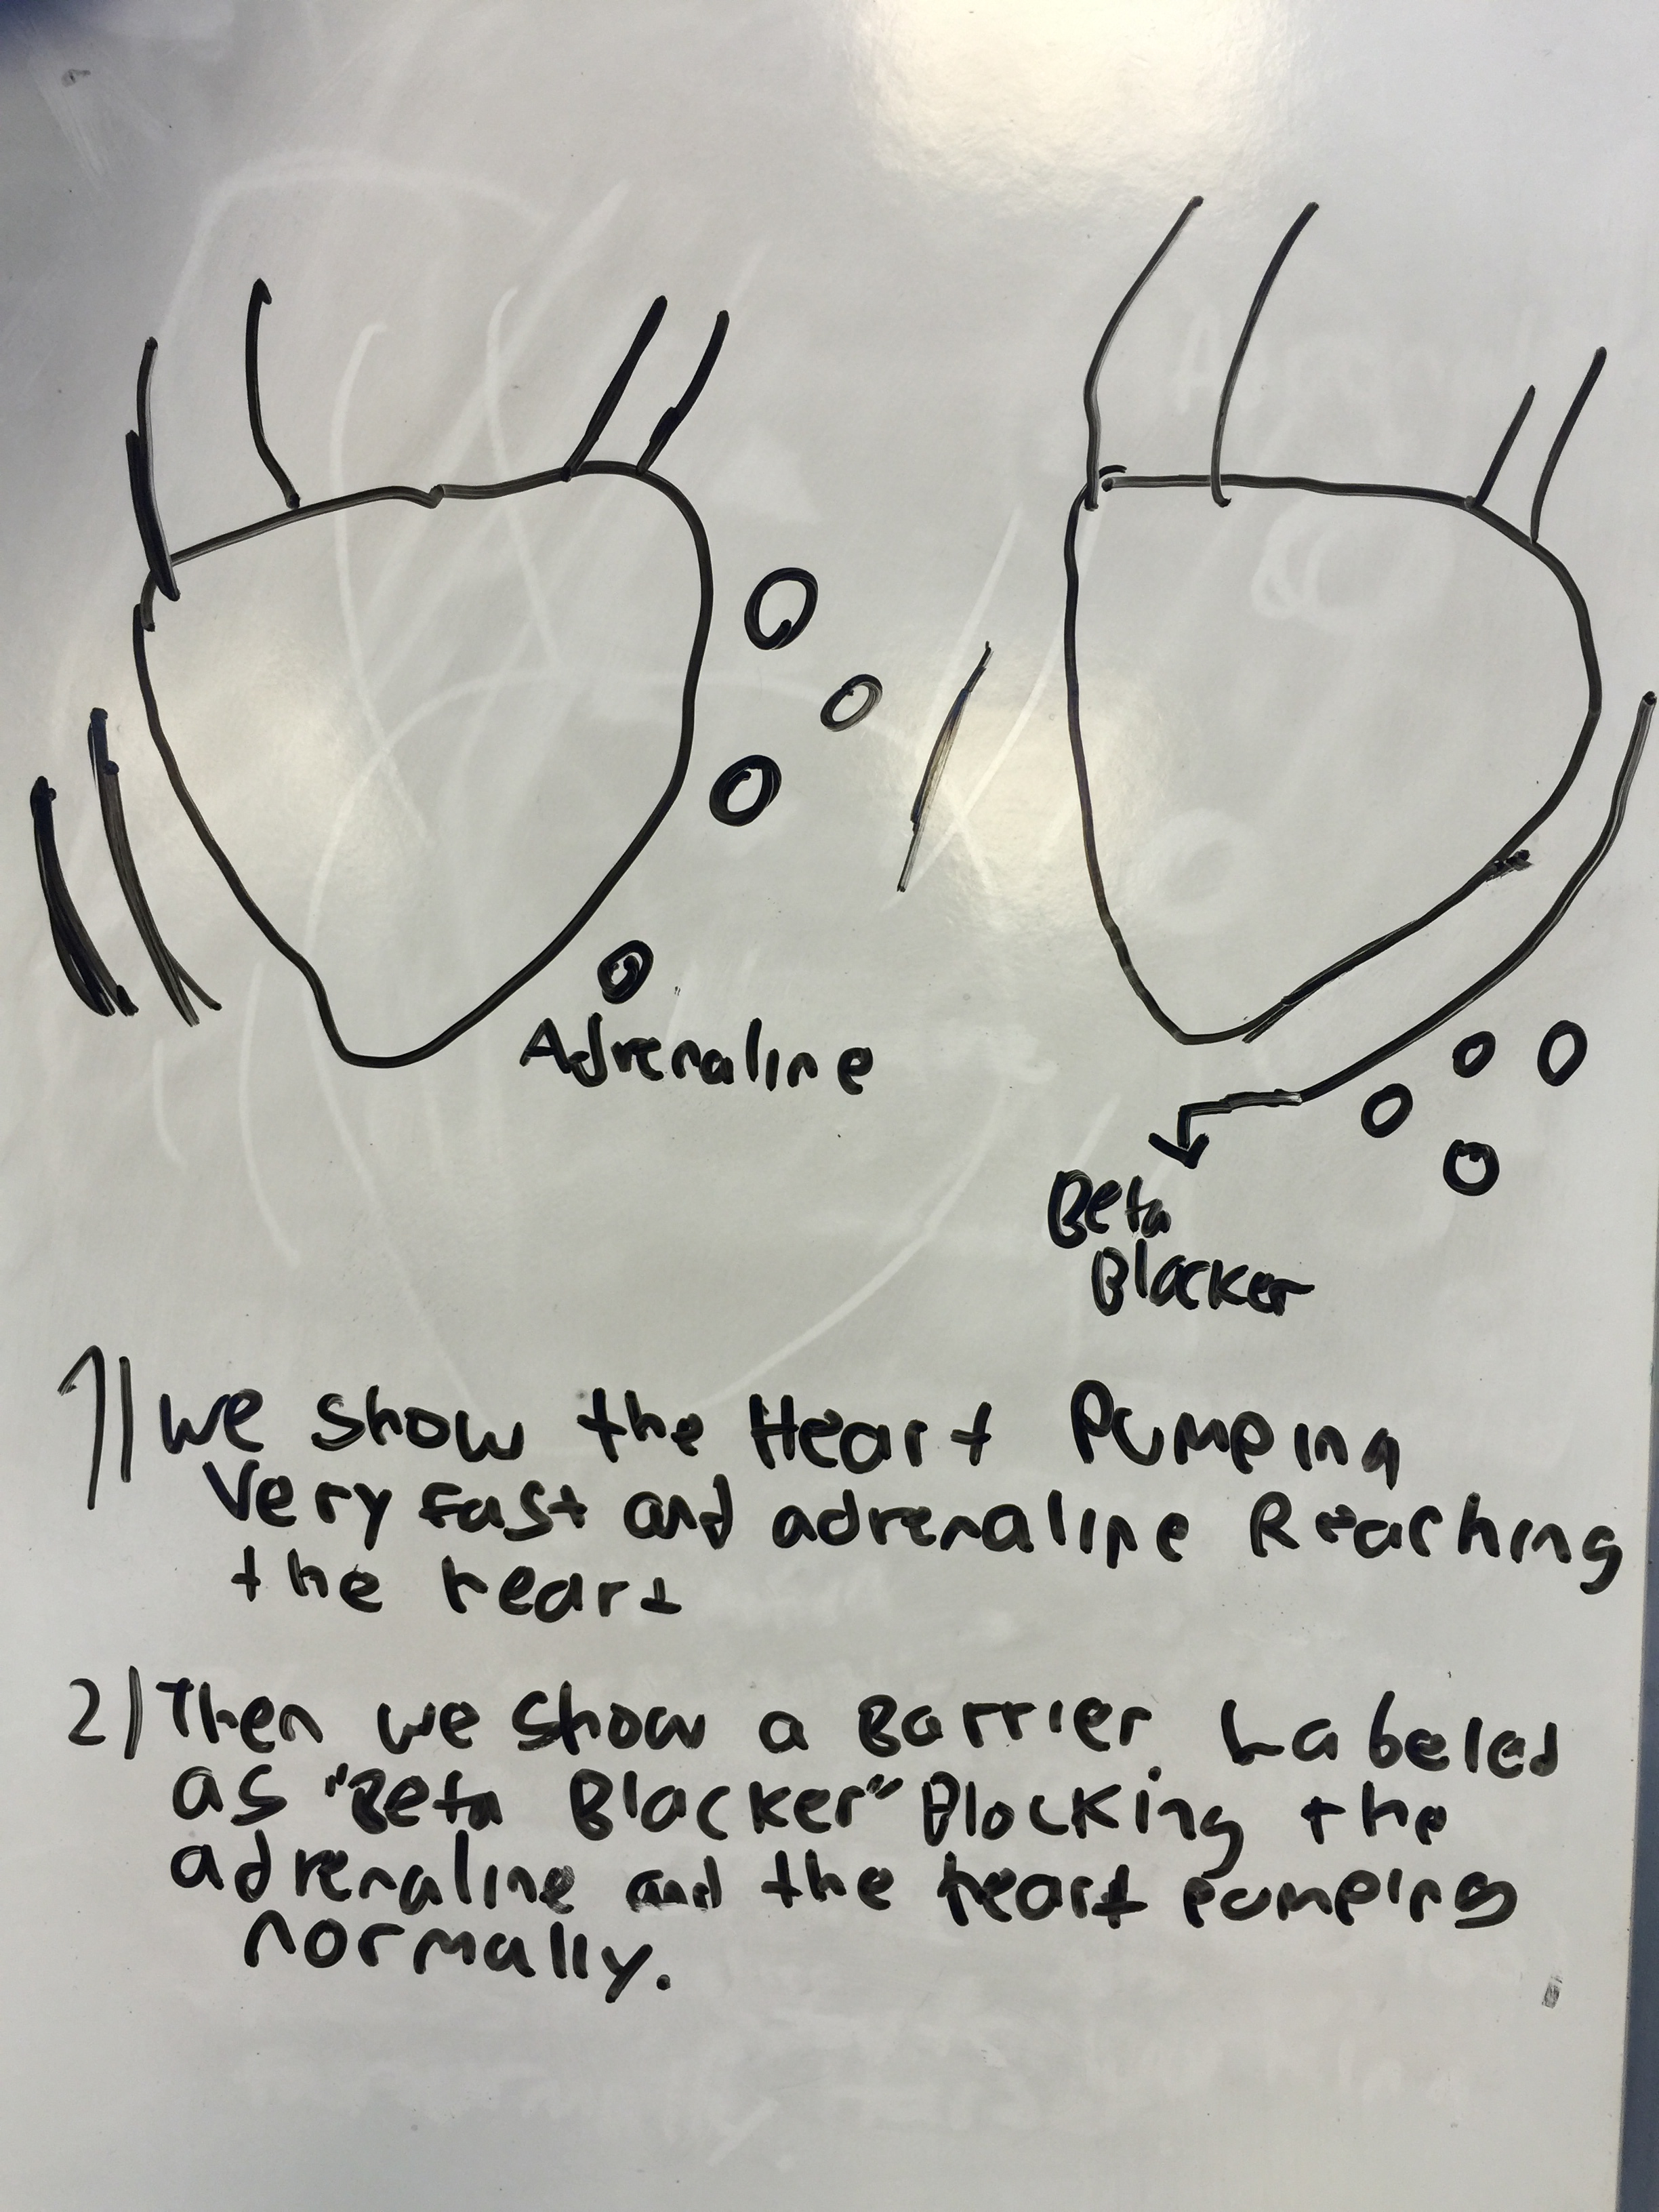 Adrenaline
Beta
Blocker
1) We show the Heart Pumping
Very fast and adrenaline Reaching
the heart
2) Then we show a Barrier Labeled
as "Beta Blocker" Blocking the
adrenaline and the heart pumping
normally.